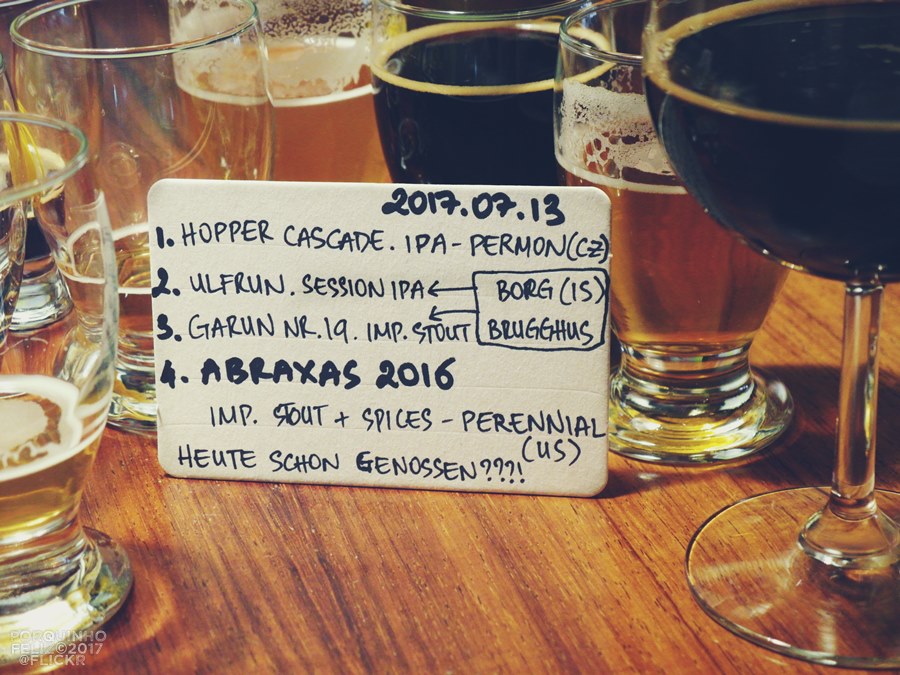 2017.07.13
1. HOPPER CASCADE. IPA - PERMON (CZ)
2. ULFRUN. SESSION IPA ← BORG (IS)
3. GARUN NR.19. IMP. STOUT ← BRUGGHUS
4. ABRAXAS 2016
IMP. STOUT + SPICES - PERENNIAL
(US)
HEUTE SCHON GENOSSEN???!
PORQUINHO
FELIZ©2017
@FLICKR